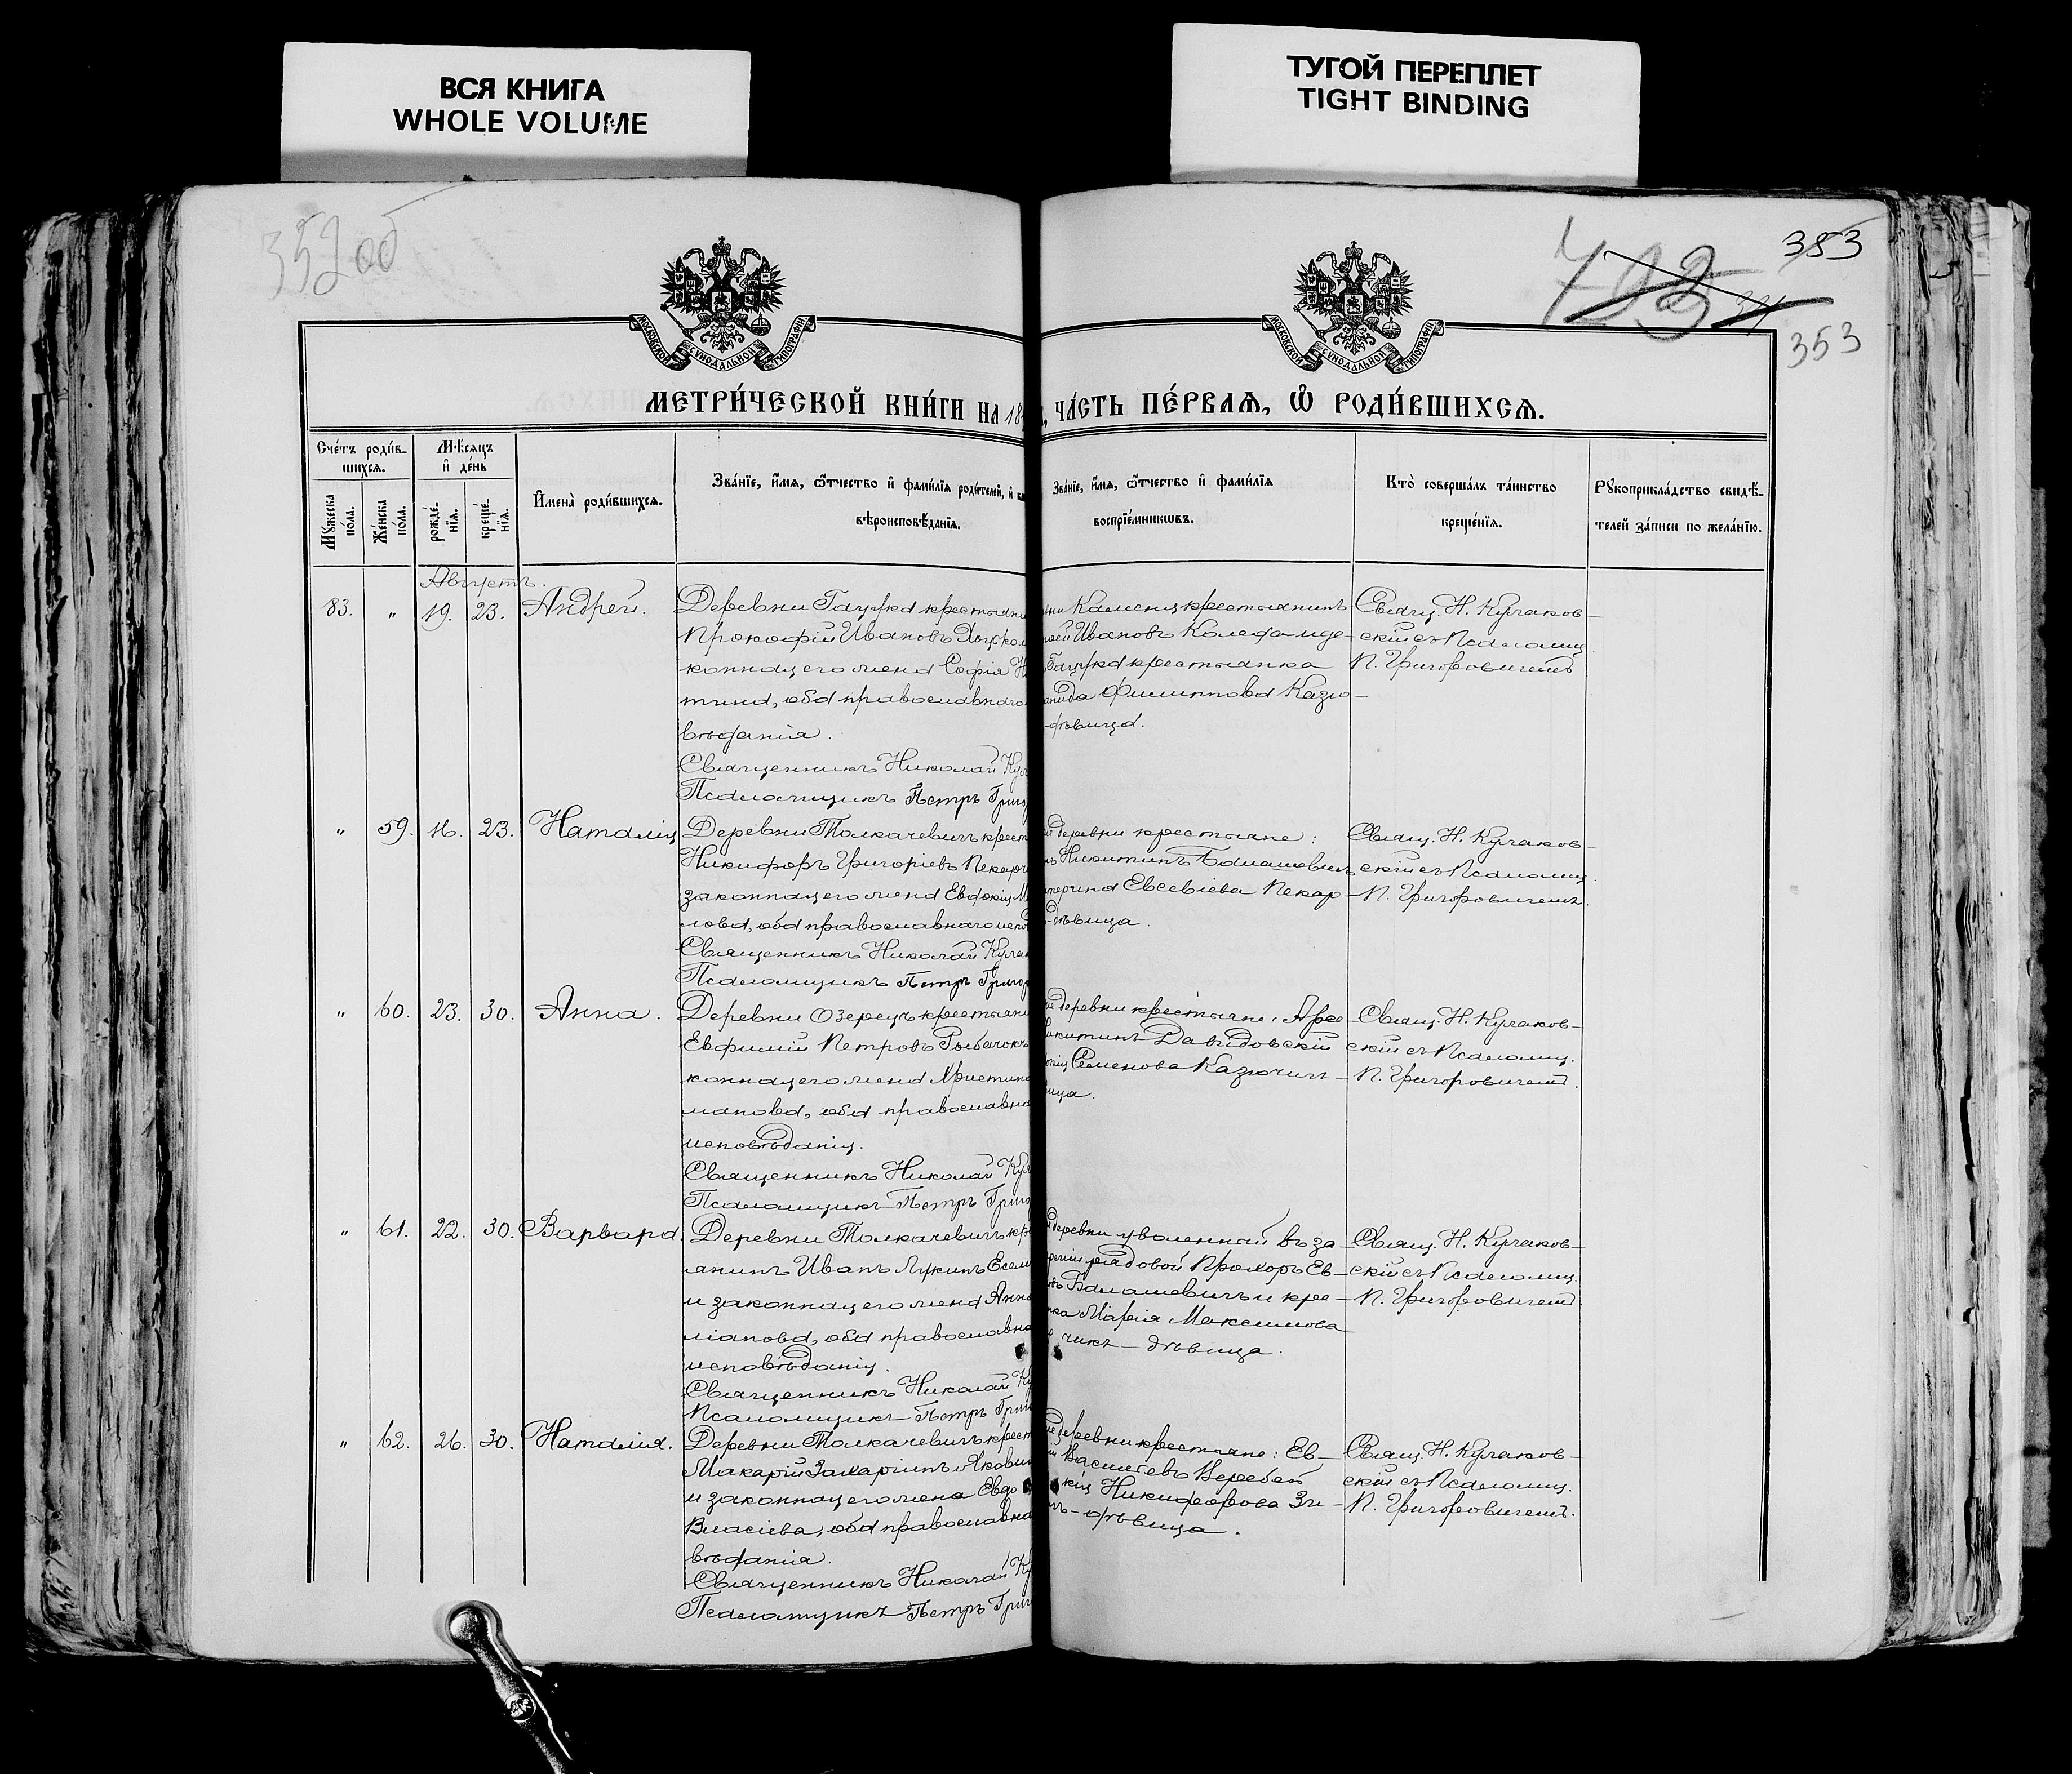 ВСЯ КНИГА
WHOLE VOLUME
ТУГОЙ ПЕРЕПЛЕТ
TIGHT BINDING
352 об
353
353
МОСКОВСКОЙ СѴНОДАЛЬНОЙ ТИПОГРАФІИ
МОСКОВСКОЙ СѴНОДАЛЬНОЙ ТИПОГРАФІИ
МЕТРИ́ЧЕСКОЙ КНИ́ГИ НА 18
ЧА́СТЬ ПЕ́РВАѦ, Ѽ РОДИ́ВШИХСѦ.
Сче́тъ роди́в-
шихся.
Мѣ́сяцъ
и҆ де́нь
Мꙋ́жеска по́ла.
Же́нска по́ла.
рожде́-нїѧ.
креще́-нїѧ.
И҆мена̀ роди́вшихся.
Зва́нїе, и҆́мѧ, ѻ҆́тчество и҆ фами́лїѧ роди́телей, и҆
вѣроисповѣ́данїѧ.
Зва́нїе, и҆́мѧ, ѻ҆́тчество и҆ фами́лїѧ
воспрїе́мникѡвъ.
Кто̀ соверша́лъ та́инство
креще́нїѧ.
Рꙋкоприкла́дство свидѣ́-
телей за́писи по жела́нїю.
Августъ.
83. " 19. 23. Андрей.
Деревни Гацука крестьяни
Прокофій Ивановъ
конная его жена Софія
тина, оба православнаго
вѣданія.
Священникъ Николай Кул
Псаломщикъ Петръ Григо
Каменя крестьянинъ
Ивановъ Коледа и де-
Гацука крестьянка
Филиппова Казю-
-дѣвица.
Свящ. Н. Кулаков-
скій съ Псаломщ.
П. Григоровичемъ
" 59. 16. 23. Наталія
Деревни Толкачевичъ крест
Никифоръ Григоріевъ
законная его жена Евдокія М
лова, оба православнаго испо
Священникъ Николай Кулак
Псаломщикъ Петръ Григор
деревни крестьяне:
Никитинъ Балашевичъ
Евсевіева Пекар-
дѣвица.
Свящ. Н. Кулаков-
скій съ Псаломщ.
П. Григоровичемъ.
" 60. 23. 30. Анна.
Деревни Озерецъ крестьяни
Евфимій Петровъ Рыбачокъ
конная его жена Христина
манова, оба православна
исповѣданія.
Священникъ Николай Кул
Псаломщикъ Петръ Григо
деревни крестьяне: Арсе-
Давидовскій
Семенова Казючиц-
вица.
Свящ. Н. Кулаков-
скій съ Псаломщ.
П. Григоровичемъ.
" 61. 22. 30. Варвара.
Деревни Толкачевичъ кр
янинъ Иванъ Лукинъ
и законная его жена Анна
ліанова, оба православна
исповѣданія.
Священникъ Николай Ку
Псаломщикъ Петръ Григ
деревни уволенный въ за-
рядовой Прохоръ Ев-
Балашевичъ и кре-
Марія Максимова
чикъ - дѣвица.
Свящ. Н. Кулаков-
скій съ Псаломщ.
П. Григоровичемъ
" 62. 26. 30. Наталія.
Деревни Толкачевичъ крест
Макарій Захаріинъ
и законная его жена Евдо
Власіева, оба православна
вѣданія.
Священникъ Николай Ку
Псаломщикъ Петръ Григ
деревни крестьяне: Ев-
Василіевъ Веребей
Никифорова
-дѣвица.
Свящ. Н. Кулаков-
скій съ Псаломщ.
П. Григоровичемъ.